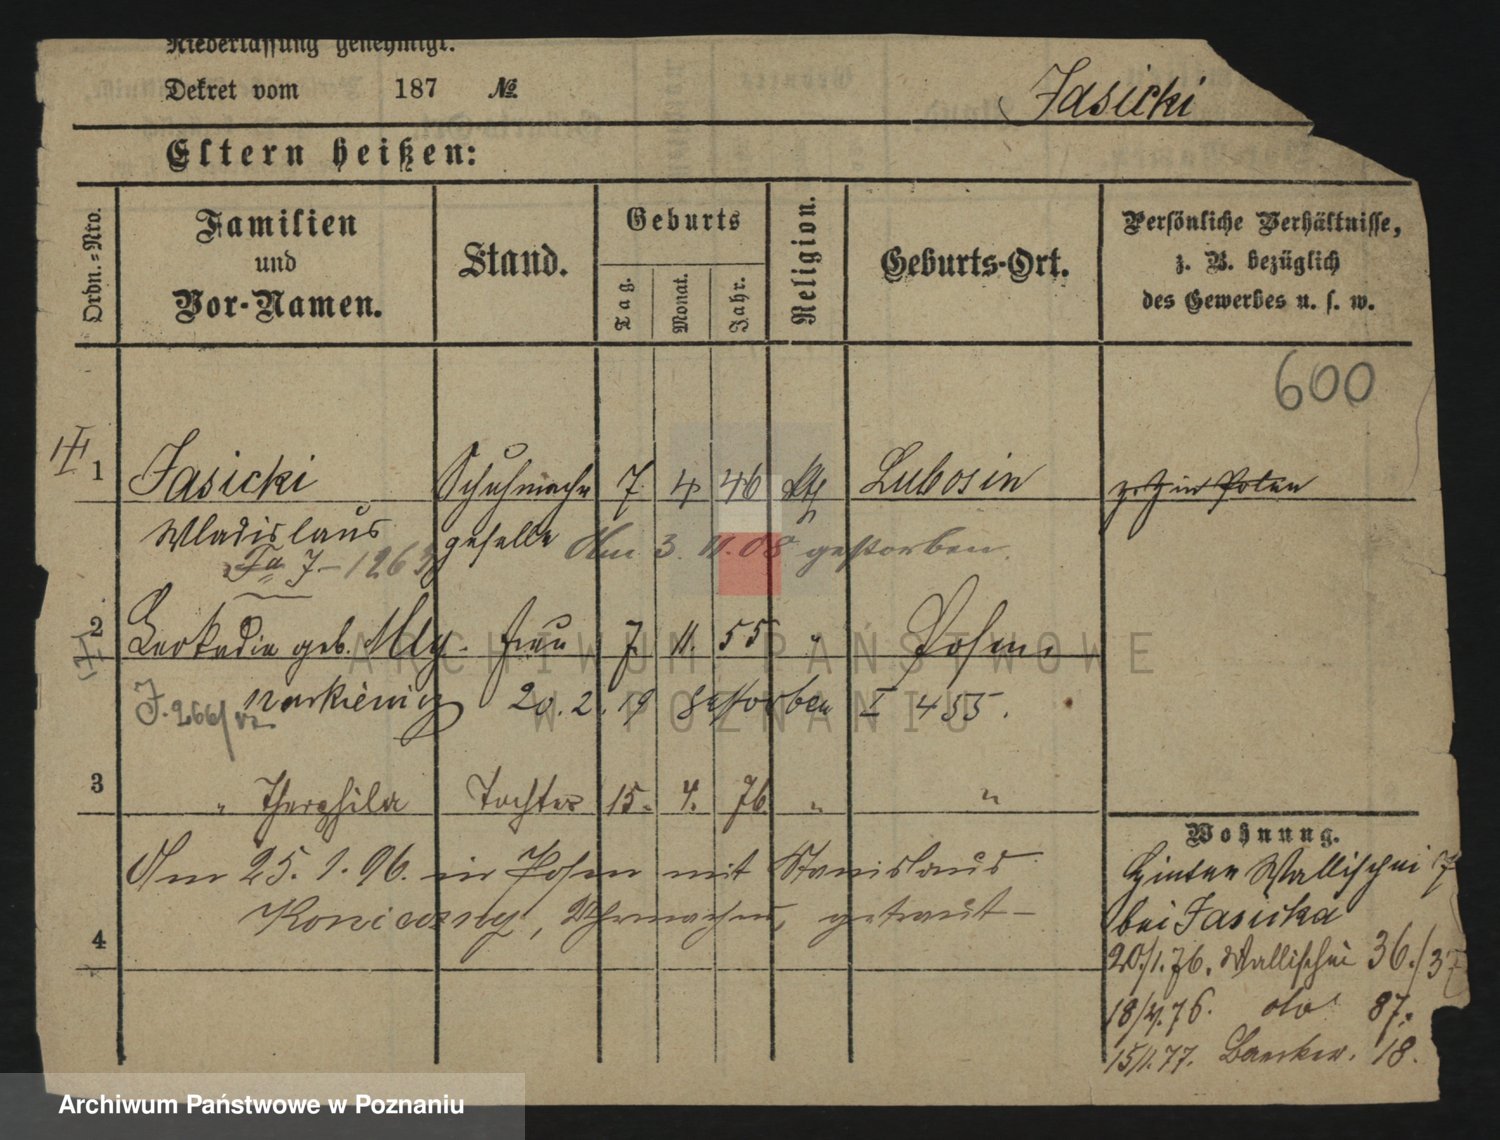 Niederlassung genehmigt.
Dekret vom 187 №
Jasicki
Eltern heißen:
Ordn.-Nro.
Familien und Vor-Namen.
Stand.
Geburts
Tag.
Monat.
Jahr.
Religion.
Geburts-Ort.
Persönliche Verhältnisse, z. B. bezüglich des Gewerbes u. s. w.
600
1 Jasicki Schuhmacher 7. 4 46 kth Lubosin z. Z. in Posen
Wladislaus geselle Am 3. 11. 08 gestorben.
Fa J-1263
2 Leokadia geb. Mly- Frau 7. 11. 55 " Posen.
narkiewicz 20. 2. 19 gestorben I 455.
J. 266/
3 " Theophila Tochter 15. 4. 76 " "
Am 25. 1. 96. in Posen mit Stanislaus
4 Konieczny, Uhrmacher, getraut-
Wohnung.
Hinter Wallischei 7
bei Jasicka
20/1. 76. Wallischei 36./37
18/4. 76. dto 87.
15/1. 77. 18.
ARCHIWUM PAŃSTWOWE
W POZNANIU
Archiwum Państwowe w Poznaniu